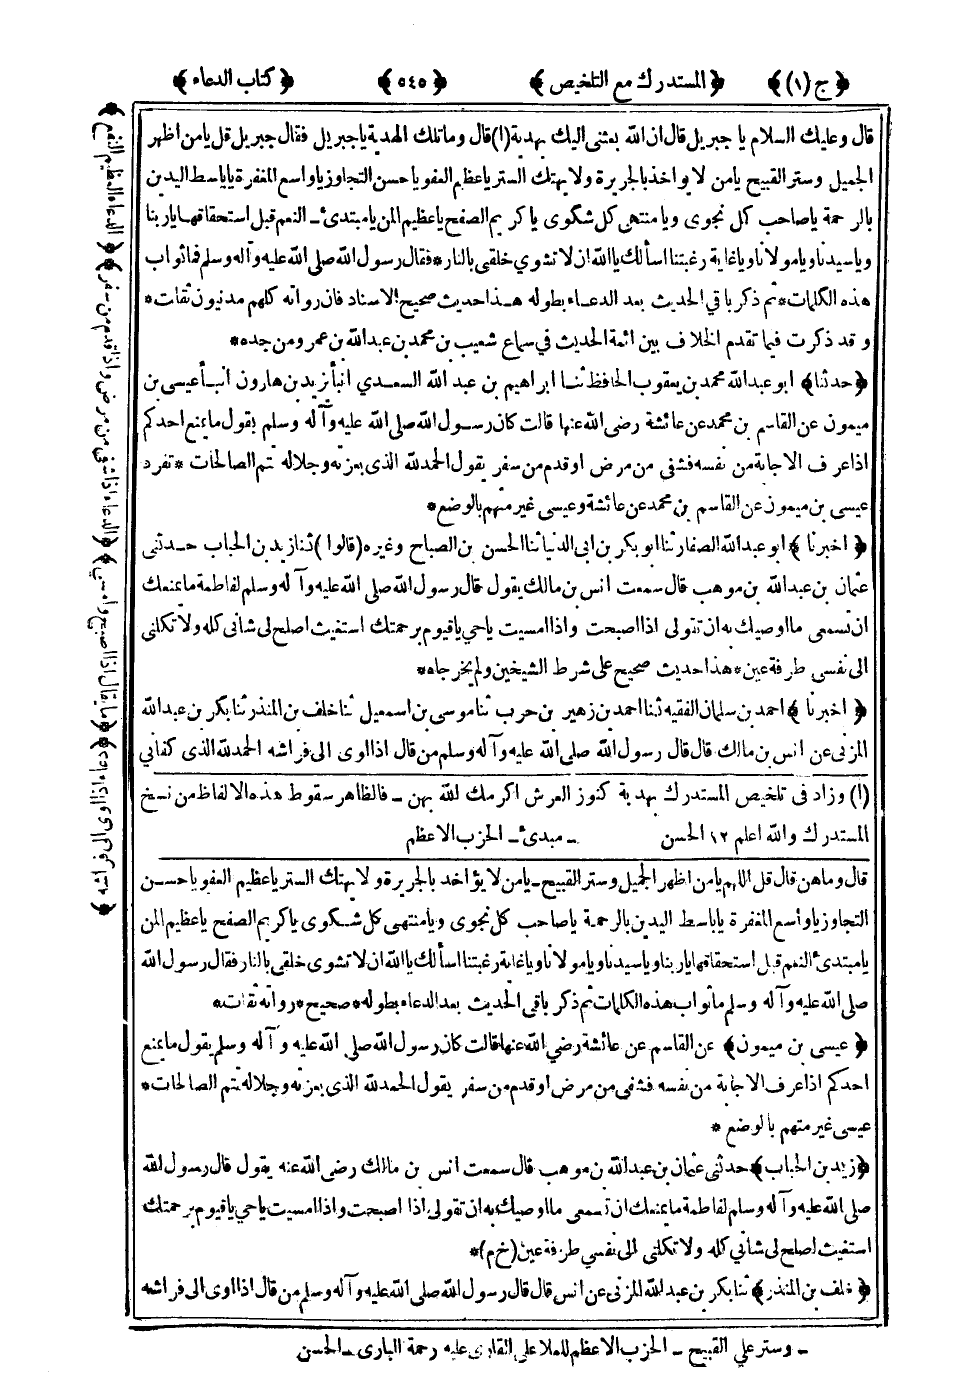 ﴿ ج (١) ﴾ ﴿ المستدرك مع التلخيص ﴾ ﴿ ٥٤٥ ﴾ ﴿ كتاب الدعاء ﴾
قال وعليك السلام يا جبريل قال ان الله بعثنى اليك بهدية (١) قال وما تلك الهدية يا جبريل فقال جبريل قل يا من اظهر
الجميل وستر القبيح يا من لا يواخذ بالجريرة ولا يهتك الستر يا عظيم العفو يا حسن التجاوز يا واسع المغفرة يا باسط اليدين
بالرحمة يا صاحب كل نجوى ويا منتهى كل شكوى يا كريم الصفح يا عظيم المن يا مبتدئ ـ النعم قبل استحقاقها يا ربنا
ويا سيدنا ويا مولانا ويا غاية رغبتنا اسألك يا الله ان لا تشوي خلقى بالنار * فقال رسول الله صلى الله عليه وآله وسلم فما ثواب
هذه الكلمات * ثم ذكر باقي الحديث بعد الدعاء بطوله هذا حديث صحيح الاسناد فان رواته كلهم مدنيون ثقات *
وقد ذكرت فيما تقدم الخلاف بين ائمة الحديث في سماع شعيب بن محمد بن عبدالله بن عمرو من جده *
﴿ حدثنا ﴾ ابو عبدالله محمد بن يعقوب الحافظ ثنا ابراهيم بن عبد الله السعدي انبأ يزيد بن هارون انبأ عيسى بن
ميمون عن القاسم بن محمد عن عائشة رضى الله عنها قالت كان رسول الله صلى الله عليه وآله وسلم يقول ما يمنع احدكم
اذا عرف الاجابة من نفسه فشفى من مرض او قدم من سفر يقول الحمد لله الذى بعزته وجلاله تتم الصالحات * تفرد
عيسى بن ميمون عن القاسم بن محمد عن عائشة وعيسى غير متهم بالوضع *
﴿ اخبرنا ﴾ ابو عبدالله الصفار ثنا ابو بكر بن ابى الدنيا ثنا الحسن بن الصباح وغيره (قالوا) ثنا زيد بن الحباب حدثنى
عثمان بن عبدالله بن موهب قال سمعت انس بن مالك يقول قال رسول الله صلى الله عليه وآله وسلم لفاطمة ما يمنعك
ان تسمعى ما اوصيك به ان تقولى اذا اصبحت واذا امسيت ياحي ياقيوم برحمتك استغيث اصلح لى شانى كله ولا تكلنى
الى نفسى طرفة عين * هذا حديث صحيح على شرط الشيخين ولم يخرجاه *
﴿ اخبرنا ﴾ احمد بن سلمان الفقيه ثنا احمد بن زهير بن حرب ثنا موسى بن اسمعيل ثنا خلف بن المنذر ثنا بكر بن عبدالله
المزنى عن انس بن مالك قال قال رسول الله صلى الله عليه وآله وسلم من قال اذا اوى الى فراشه الحمد لله الذى كفانى
(١) وزاد فى تلخيص المستدرك بهدية كنوز العرش اكرمك الله بهن ـ فالظاهر سقوط هذه الالفاظ من نسخ
المستدرك والله اعلم ١٢ الحسن ـ مبدئ ـ الحزب الاعظم
قال وما هن قال قل اللهم يا من اظهر الجميل وستر القبيح ـ يا من لا يؤاخذ بالجريرة ولا يهتك الستر يا عظيم العفو يا حسن
التجاوز يا واسع المغفرة يا باسط اليدين بالرحمة يا صاحب كل نجوى ويا منتهى كل شكوى يا كريم الصفح يا عظيم المن
يا مبتدئ النعم قبل استحقاقها يا ربنا ويا سيدنا ويا مولانا ويا غاية رغبتنا اسألك يا الله ان لا تشوى خلقى بالنار فقال رسول الله
صلى الله عليه وآله وسلم ما ثواب هذه الكلمات ثم ذكر باقى الحديث بعد الدعاء بطوله * صحيح * رواته ثقات *
﴿ عيسى بن ميمون ﴾ عن القاسم عن عائشة رضي الله عنها قالت كان رسول الله صلى الله عليه وآله وسلم يقول ما يمنع
احدكم اذا عرف الاجابة من نفسه فشفى من مرض او قدم من سفر يقول الحمد لله الذى بعزته وجلاله تتم الصالحات *
عيسى غير متهم بالوضع *
﴿ زيد بن الحباب ﴾ حدثنى عثمان بن عبدالله بن موهب قال سمعت انس بن مالك رضى الله عنه يقول قال رسول الله
صلى الله عليه وآله وسلم لفاطمة ما يمنعك ان تسمعى ما اوصيك به ان تقولى اذا اصبحت واذا امسيت ياحي ياقيوم برحمتك
استغيث اصلح لى شانى كله ولا تكلنى الى نفسي طرفة عين (خ م) *
﴿ خلف بن المنذر ﴾ ثنا بكر بن عبدالله المزنى عن انس قال قال رسول الله صلى الله عليه وآله وسلم من قال اذا اوى الى فراشه
ـ وستر علي القبيح ـ الحزب الاعظم للملا على القارى عليه رحمة البارى ـ الحسن
﴿ الدعاء العظيم النفع ﴾ ﴿ الدعاء اذا شفى من مرض واذا قدم من سفر ﴾ ﴿ ما يقال اذا اصبح وامسى ﴾